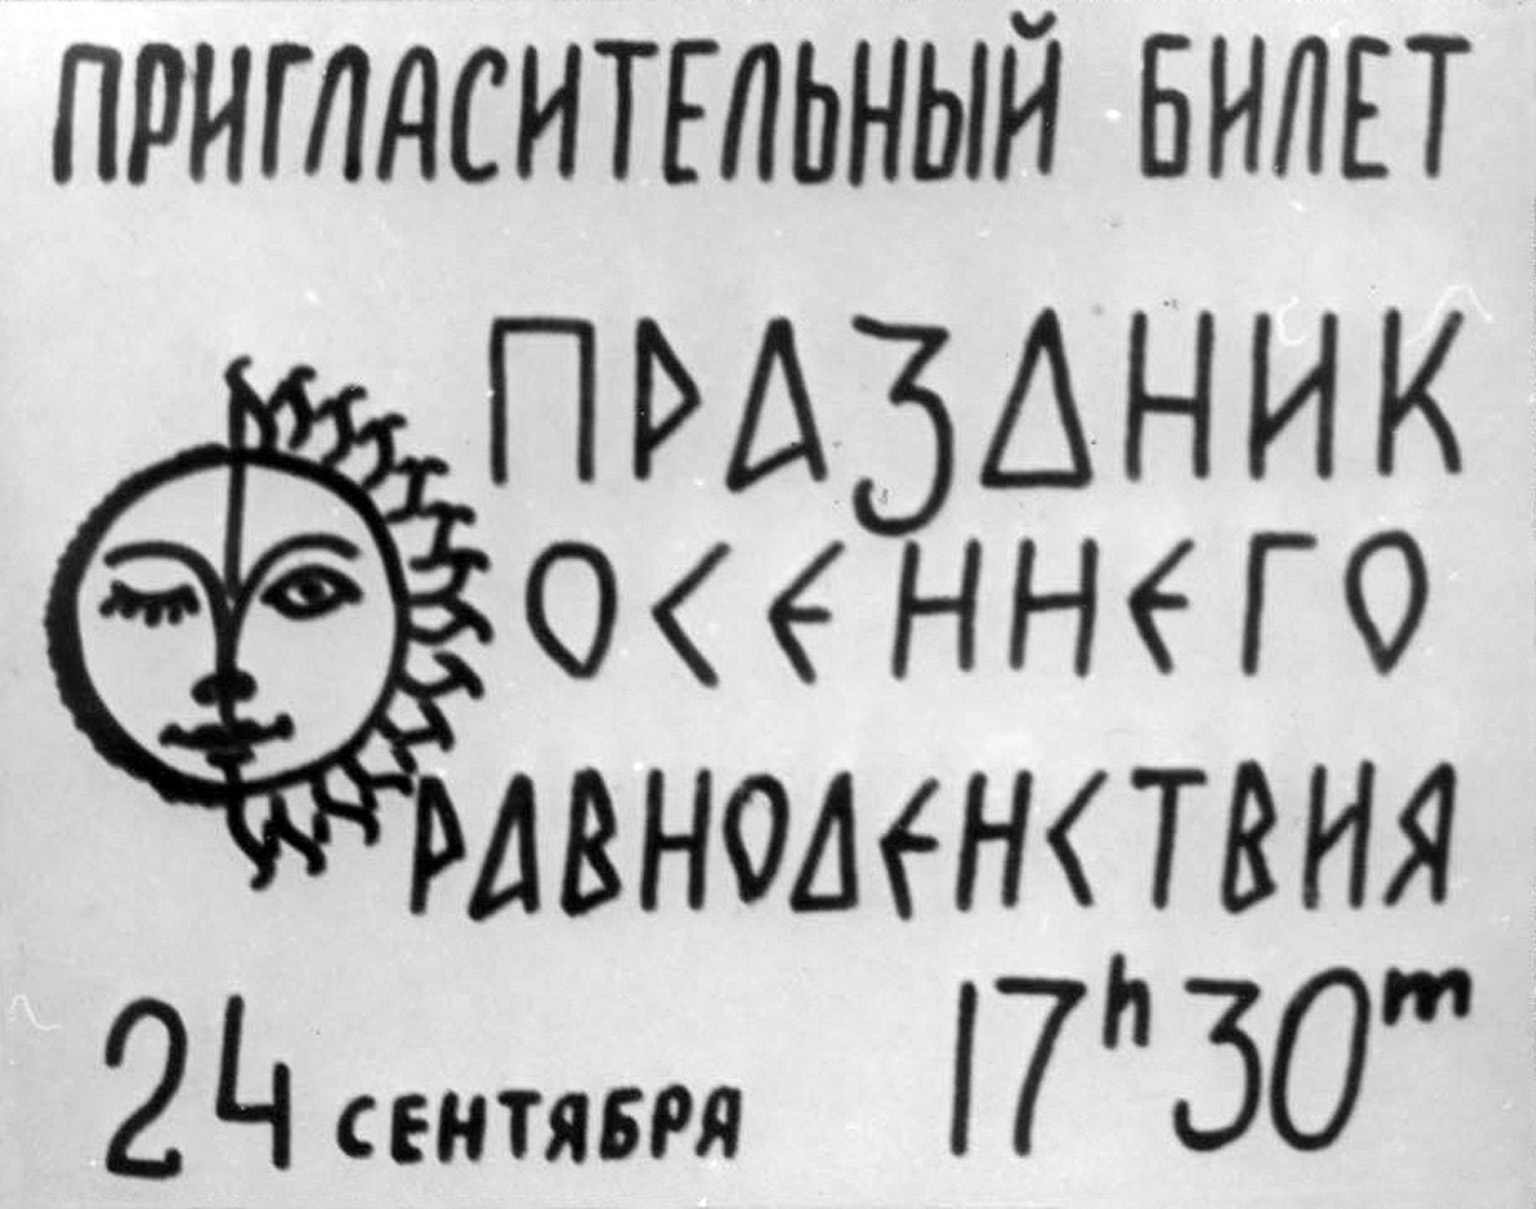 ПРИГЛАСИТЕЛЬНЫЙ БИЛЕТ
ПРАЗДНИК
ОСЕННЕГО
РАВНОДЕНСТВИЯ
24 СЕНТЯБРЯ 17h 30m